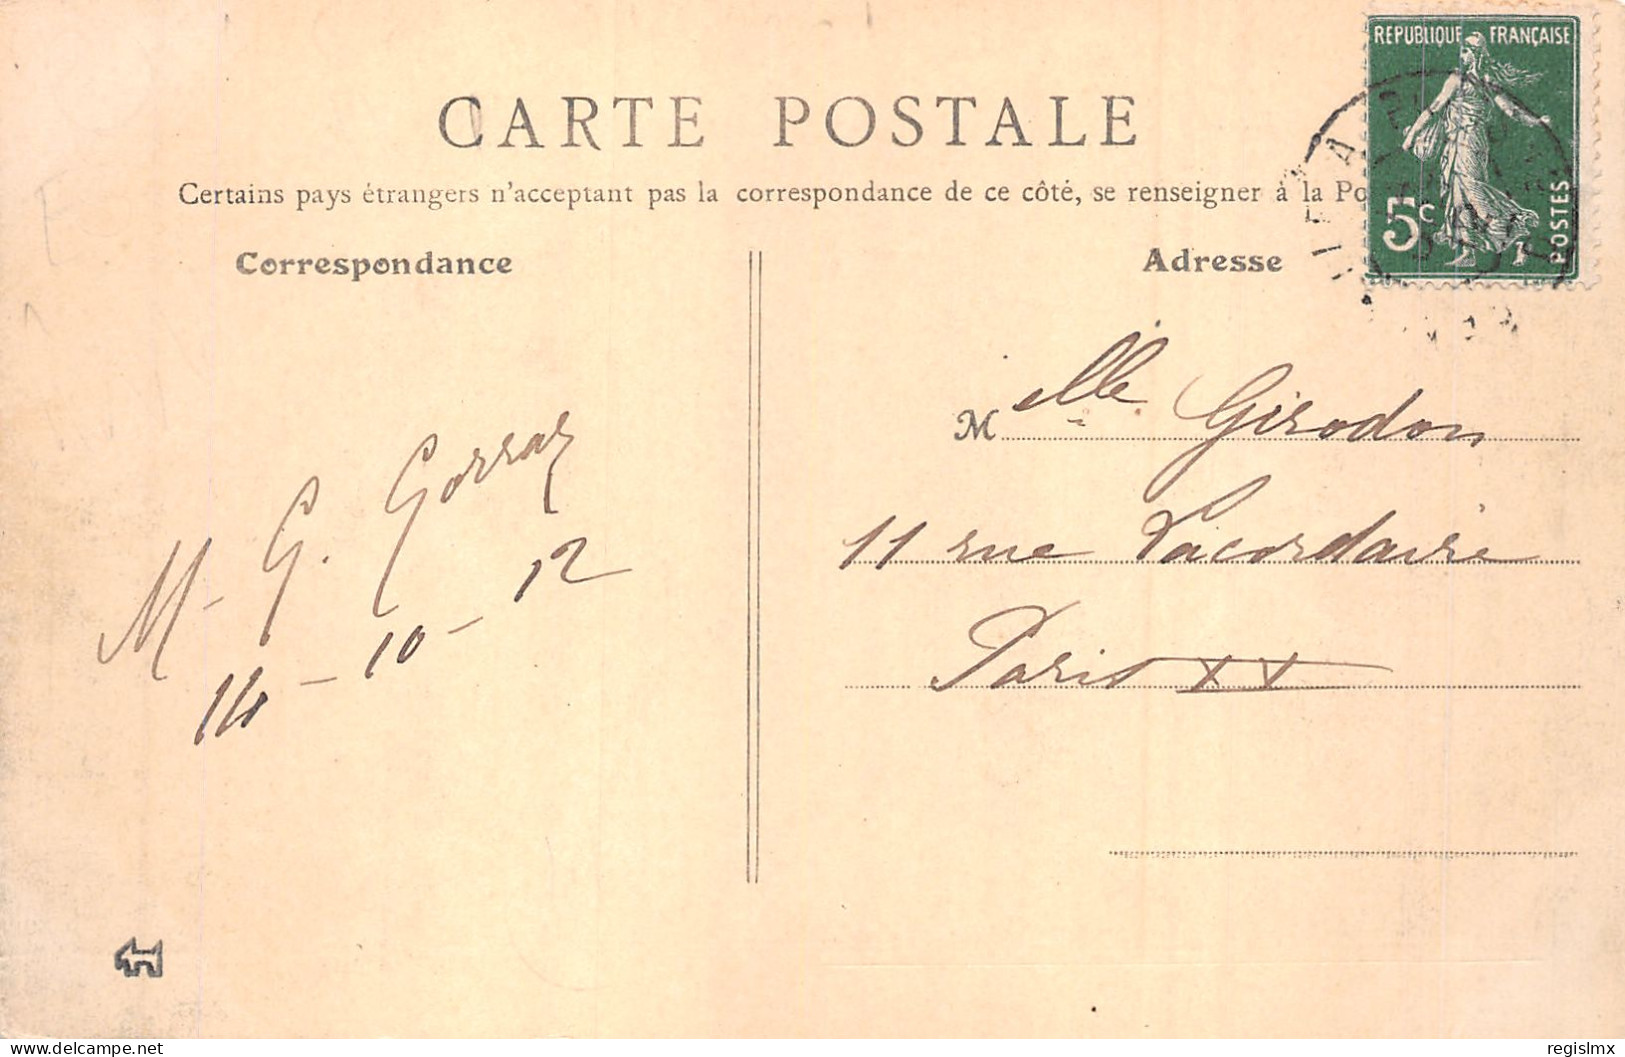 CARTE POSTALE
Certains pays étrangers n'acceptant pas la correspondance de ce côté, se renseigner à la Po
Correspondance
Adresse
REPUBLIQUE FRANÇAISE
5c
POSTES
Mlle Girodon
11 rue Lacordaire
Paris XX
M. G. Gorraz
14-10-12
delcampe.net
regislmx